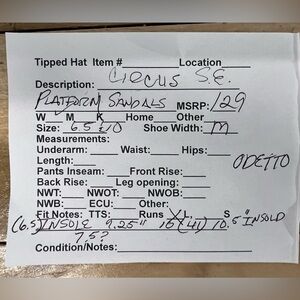 Tipped Hat Item #______ Location______
Description: CIRCUS S.E.
PLATFORM SANDALS MSRP: 129
W__ M__ K__ Home__ Other______
Size: 6.5 Shoe Width: M
Measurements:
Underarm: ____ Waist: ____ Hips: ____
Length: ____ ODETTO
Pants Inseam: ____ Front Rise: ____
Back Rise: ____ Leg opening: ____
NWT: ____ NWOT: ____ NWOB: ____
NWB: ____ ECU: ____ Other: ____
Fit Notes: TTS: ____ Runs L S
(6.5) INSOLE 9.25" (41) 10.5" INSOLD
7.5?
Condition/Notes: ____